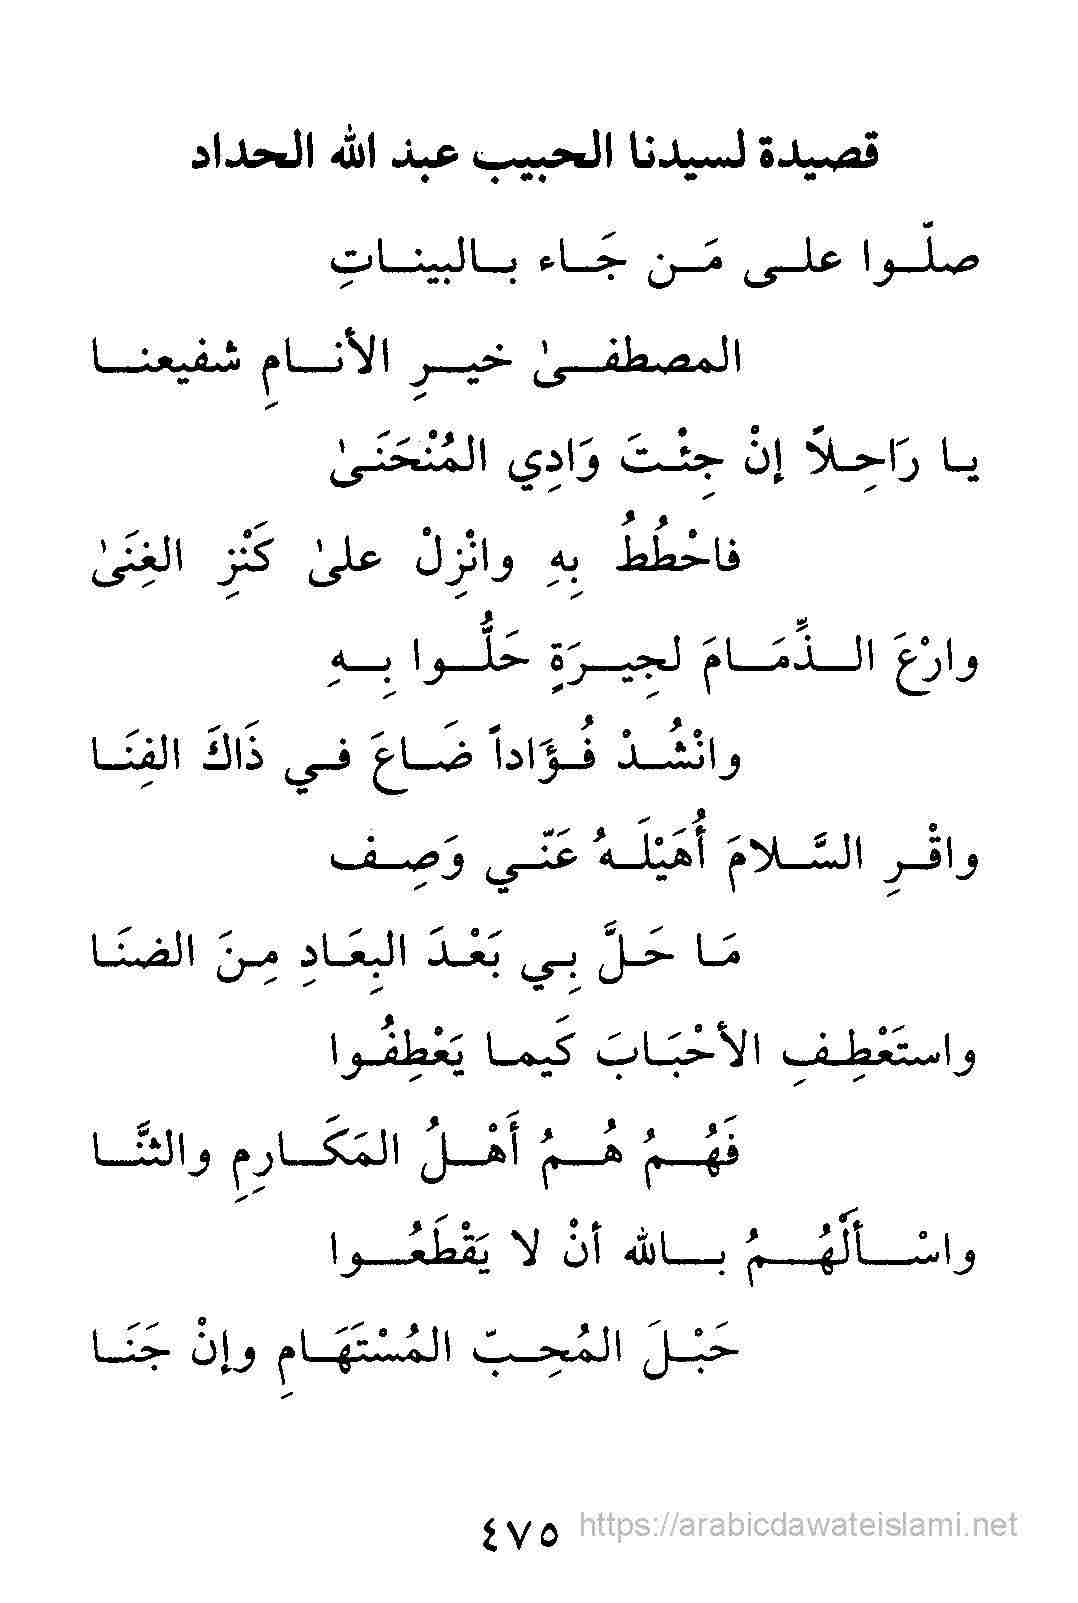 قصيدة لسيدنا الحبيب عبد الله الحداد
صلّوا على مَن جَاء بالبيناتِ
المصطفىٰ خيرِ الأنامِ شفيعنا
يا رَاحِلاً إنْ جِئْتَ وَادِي المُنْحَنَىٰ
فاحْطُطُ بِهِ وانْزِلْ علىٰ كَنْزِ الغِنَىٰ
وارْعَ الذِّمَامَ لجِيرَةٍ حَلُّوا بِهِ
وانْشُدْ فُؤَاداً ضَاعَ في ذَاكَ الفِنَا
واقْرِ السَّلامَ أُهَيْلَهُ عَنّي وَصِف
مَا حَلَّ بِي بَعْدَ البِعَادِ مِنَ الضنَا
واستَعْطِفِ الأحْبَابَ كَيما يَعْطِفُوا
فَهُمُ هُمُ أَهْلُ المَكَارِمِ والثنَّا
واسْألَهُمُ بالله أنْ لا يَقْطَعُوا
حَبْلَ المُحِبّ المُسْتَهَامِ وإنْ جَنَا
٤٧٥
https://arabicdawateislami.net